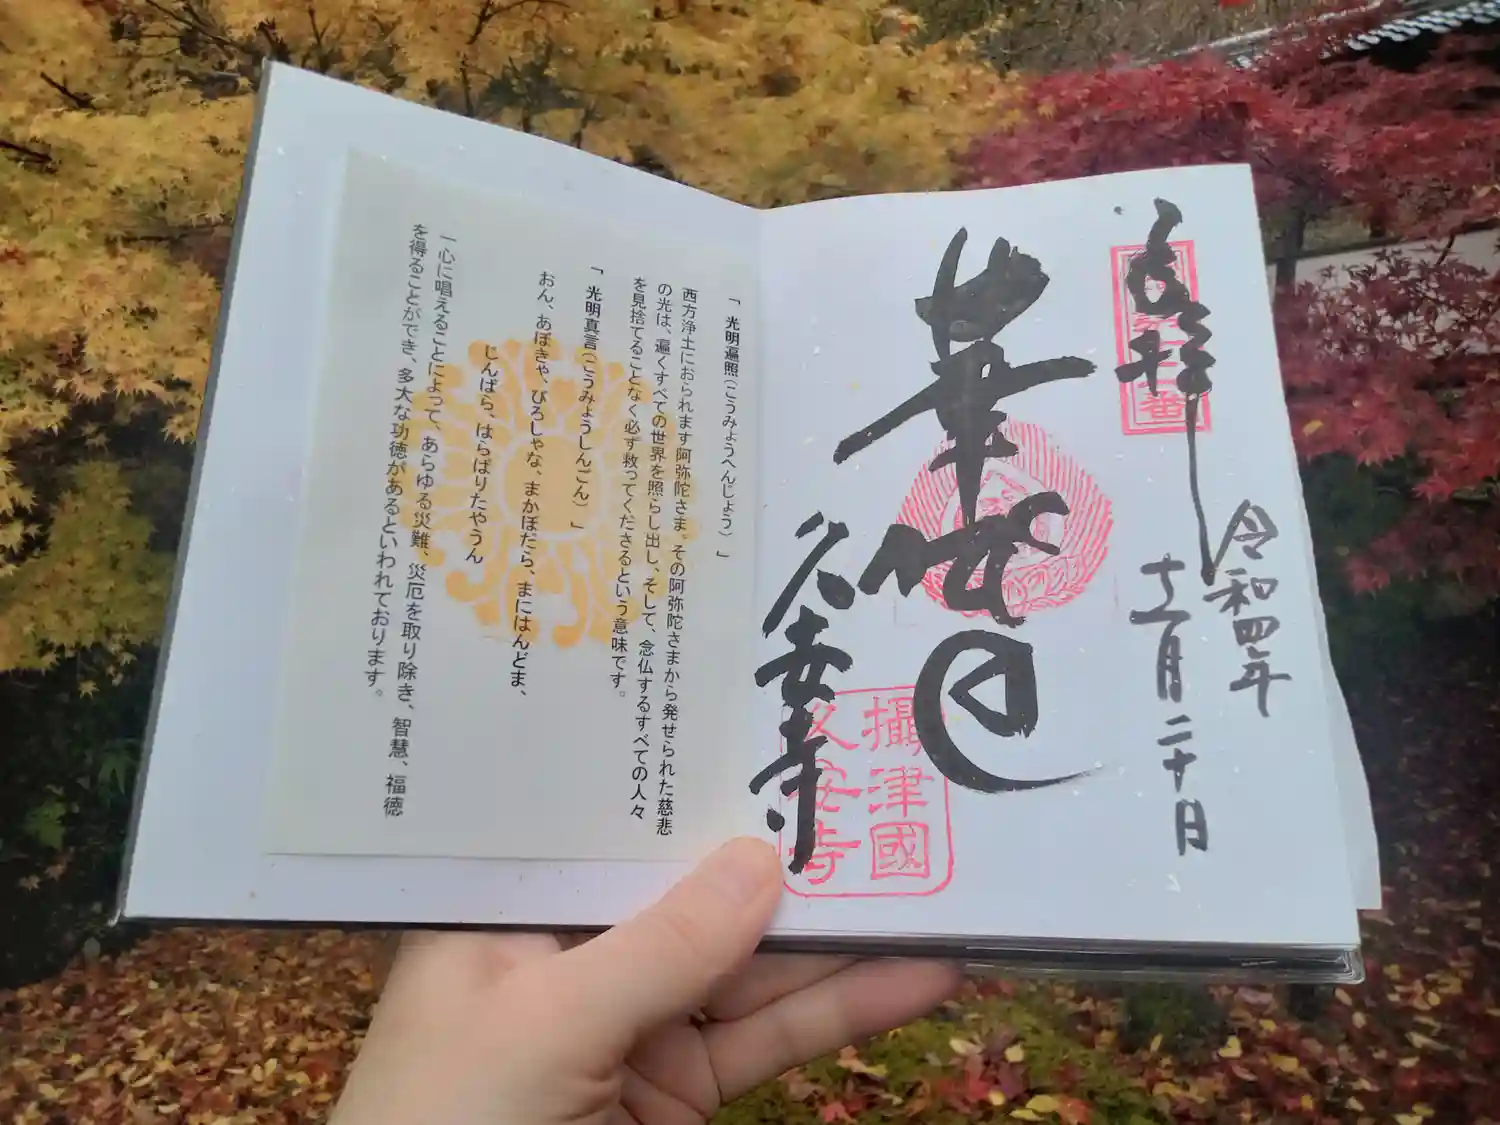 令和四年
十一月二十日
奉拝
久安寺
攝津國
久安寺
「光明遍照(こうみょうへんじょう)」
西方浄土におられます阿弥陀さま。その阿弥陀さまから発せられた慈悲
の光は、遍くすべての世界を照らし出し、そして、念仏するすべての人々
を見捨てることなく必ず救ってくださるという意味です。
「光明真言(こうみょうしんごん)」
おん、あぼきゃ、びろしゃな、まかぼだら、まにはんどま、
じんばら、はらばりたやうん
一心に唱えることによって、あらゆる災難、災厄を取り除き、智慧、福徳
を得ることができ、多大な功徳があるといわれております。